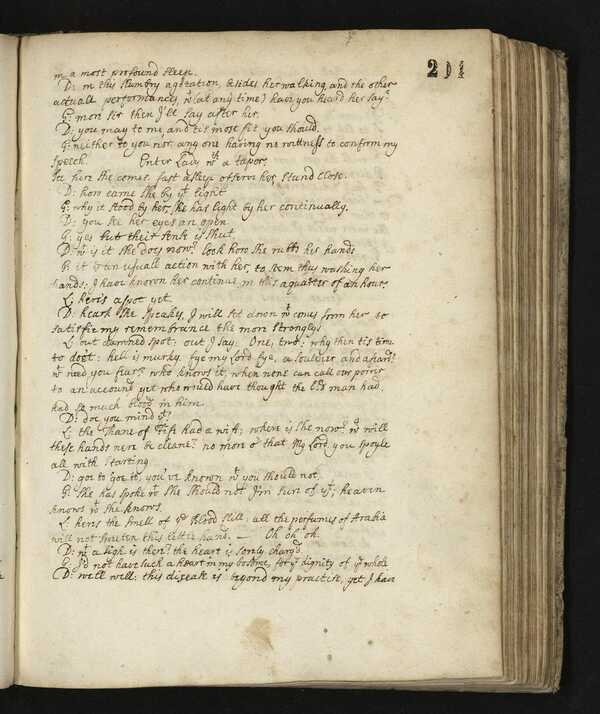 291
in a most profound sleep.
D: in this slumbry agitation, besides her walking and the other
actuall performances, wt (at any time) have you heard her say?
G: mon sir then I'le say after her.
D: you may to me, and tis most fit you should.
G: neither to you nor any one having no wittness to confirm my
speech. Enter Lady wth a taper.
See here she comes. fast asleep observe her, stand close.
D: how came she by yt light
G: why it stood by her, she has light by her continually,
D: you see her eyes are open
G: yes but their sense is shut
D: wt is it she does now? look how she rubbs her hands
G: it is an usuall action with her, to seem thus washing her
hands, I have known her continue in this a quarter of an hour.
L: heris a spot yet
D: heark she speakes, I will set down wt comes from her to
satisfie my remembrance the more strongly.
L: out damned spot: out I say. One, two: why then tis time
to doot: hell is murky. fye my Lord fye, a souldier and afeard?
wt need you fear? who knows it, when none can call our power
to an account, yet who would have thought the old man had
had so much blood in him.
D: doe you mind yt?
L: the Thane of Fife had a wife; where is she now? wt will
these hands nere be cleane? no more o' that My Lord, you spoyle
all with starting.
D: goe to goe to, you've known wt you should not,
G: she has spoke wt she should not I'm sure of yt; heaven
knows wt she knows.
L: heris the smell of ye blood still: all the perfumes of Arabia
will not sweeten this little hand. — Oh oh oh.
D: wt a sigh is then? the heart is sorely charg'd
G: I'd not have such a heart in my bosome, for ye dignity of ye whole
D: well well: this disease is beyond my practise, yet I have